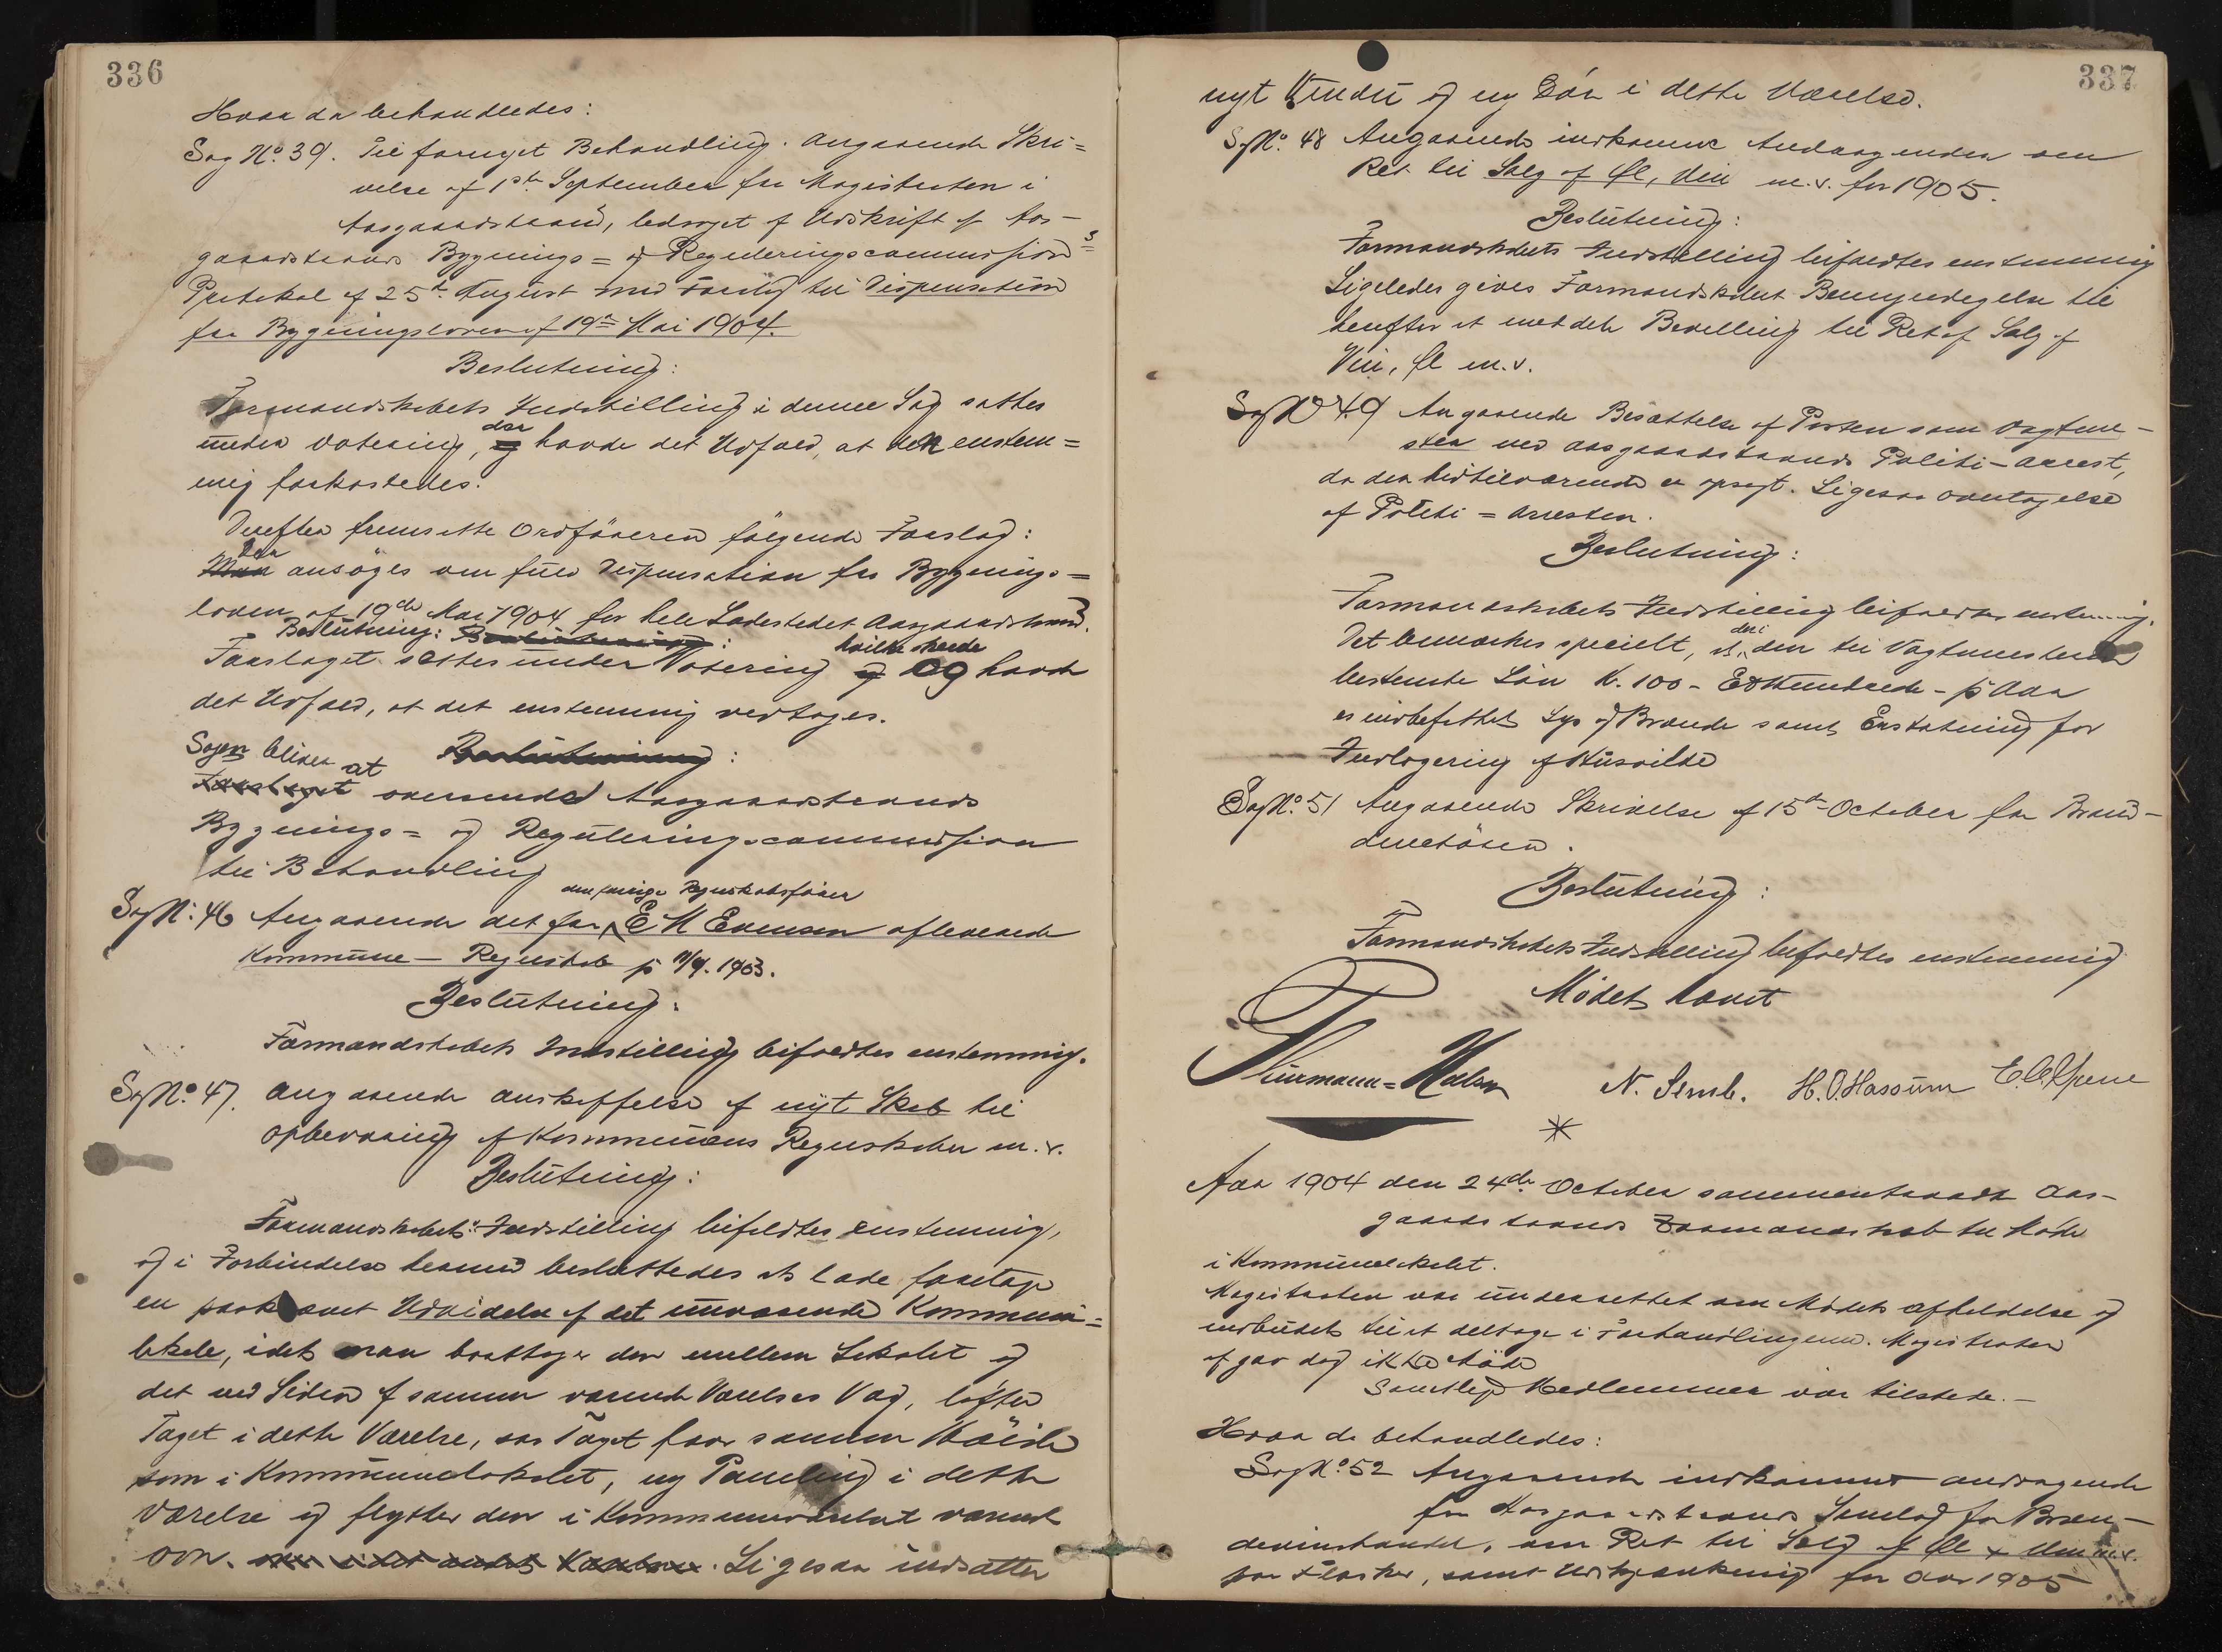 336
Hvor da behandledes:
Sag No. 39. Til fornyet Behandling. Angaaende Skri=
velse af 1ste September fra Magistraten i
Aasgaardstrand, ledsaget af Udskrift af Aas-
gaardstrands Bygnings= og Reguleringscommissions=
Protokol af 25de August med Forslag til Dispensation
fra Bygningsloven af 19de Mai 1904.
Beslutning:
Formandskabets Indstilling i denne Sag sattes
under Votering, og der havde det Udfald, at den enstem=
mig forkastedes.
Derefter fremsatte Ordføreren følgende Forslag:
Man Der ansøges om fuld Dispensation fra Bygnings=
loven af 19de Mai 1904 for hele Ladestedet Aasgaardstrand.
Beslutning: Beslutning:
Forslaget sattes under Votering og hvilke skede Og havde
det Udfald, at det enstemmig vedtoges.
Beslutning:
Sagen bliver at
Forslaget oversende Aasgaardstrands
Bygnings= og Reguleringscommission
til Behandling
Sag No. 46 Angaaende det fra forrige Regnskabsfører E M Evensen afleverede
Kommune- Regnskab pr 11/9. 1903.
Beslutning:
Formandskabets Indstilling bifaldtes enstemmig.
Sag No. 47. Angaaende anskaffelse af nyt Skab til
opbevaring af Kommunens Regnskaber m. v.
Beslutning:
Formandskabets Indstilling bifaldtes enstemmig,
og i Forbindelse hermed besluttedes at lade foretage
en paakrævet Udvidelse af det nuværende Kommune=
lokale, idet man borttager den mellem Lokalet og
det ved Siden af samme værende Værelses Væg, løfter
Taget i dette Værelse, saa Taget faar samme Høide
som i Kommunelokalet, ny Paneling i dette
Værelse og flytter den i Kommuneværelset værende
ovn. Ligesaa indsætter
337
nyt Vindu og ny Dør i dette Værelse.
S. No. 48 Angaaende indkomne Andragender om
Ret til Salg af Øl, Vin m. v. for 1905.
Beslutning:
Formandskabets Indstilling bifaldtes enstemmig
Ligeledes gives Formandskabet Bemyndigelse til
herefter at meddele Bevilling til Ret af Salg af
Vin, Øl m. v.
Sag No 49 Angaaende Besættelse af Posten som Vagtme-
ster ved Aasgaardstrands Politi-Arrest,
da den hidtilværende er opsagt. Ligesaa Overtagelse
af Politi=Arresten.
Beslutning:
Formandskabets Indstilling bifaldtes enstemmig.
Det bemærkes specielt, at deri den til Vagtmesteren
bestemte Løn Kr. 100 - Et Hundrede - pr Aar
er indbefattet Lys og Brænde samt Erstatning for
Indlogering af Husvilde
Sag No. 51 Angaaende Skrivelse af 15de October fra Brand-
directøren.
Beslutning:
Formandskabets Indstilling bifaldtes enstemmig
Mødet hævet
N. Semb. H. O. Hassum
Aar 1904 den 24de October sammentraadte Aas-
gaardstrands Formandskab til Møde
i Kommunelokalet.
Magistraten var underrettet om Mødets afholdelse og
indbudet til at deltage i Forhandlingerne. Magistraten
af gav dog ikke Møde
Samtlige Medlemmer var tilstede. -
Hvor da behandledes:
Sag No. 52 Angaaende indkommet andragende
fra Aasgaardstrands Samlag for Bræn-
devinshandel, om Ret til Salg af Øl & Vin m.v.
paa Flasker, samt Udskjænkning for Aar 1905